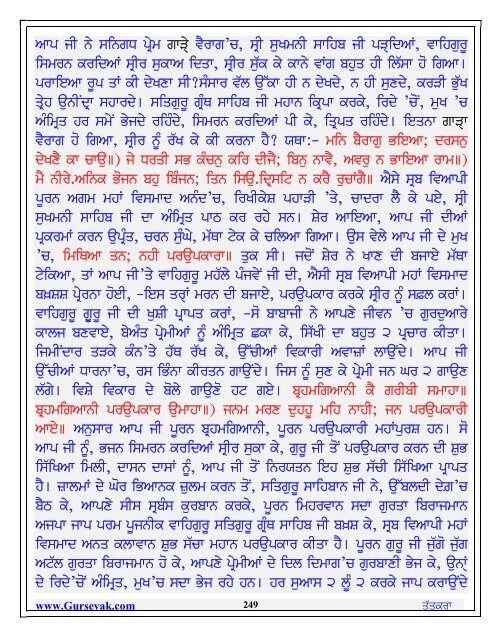 ਆਪ ਜੀ ਨੇ ਸਨਿਗਧ ਪ੍ਰੇਮ ਗਾੜ੍ਹੇ ਵੈਰਾਗ'ਚ, ਸ੍ਰੀ ਸੁਖਮਨੀ ਸਾਹਿਬ ਜੀ ਪੜ੍ਹਦਿਆਂ, ਵਾਹਿਗੁਰੂ
ਸਿਮਰਨ ਕਰਦਿਆਂ ਸ੍ਰੀਰ ਸੁਕਾਅ ਦਿਤਾ, ਸ੍ਰੀਰ ਸੁੱਕ ਕੇ ਕਾਨੇ ਵਾਂਗ ਬਹੁਤ ਹੀ ਲਿੱਸਾ ਹੋ ਗਿਆ।
ਪਰਾਇਆ ਰੂਪ ਤਾਂ ਕੀ ਦੇਖਣਾ ਸੀ?ਸੰਸਾਰ ਵੱਲ ਉੱਕਾ ਹੀ ਨ ਦੇਖਦੇ, ਨ ਹੀ ਸੁਣਦੇ, ਕਰੜੀ ਭੁੱਖ
ਤ੍ਰੇਹ ਉਨੀਂਦ੍ਰਾ ਸਹਾਰਦੇ। ਸਤਿਗੁਰੂ ਗ੍ਰੰਥ ਸਾਹਿਬ ਜੀ ਮਹਾਨ ਕ੍ਰਿਪਾ ਕਰਕੇ, ਰਿਦੇ 'ਚੋਂ, ਮੁਖ 'ਚ
ਅੰਮ੍ਰਿਤ ਹਰ ਸਮੇਂ ਭੇਜਦੇ ਰਹਿੰਦੇ, ਸਿਮਰਨ ਕਰਦਿਆਂ ਪੀ ਕੇ, ਤ੍ਰਿਪਤ ਰਹਿੰਦੇ। ਇਤਨਾ ਗਾੜ੍ਹਾ
ਵੈਰਾਗ ਹੋ ਗਿਆ, ਸ੍ਰੀਰ ਨੂੰ ਰੱਖ ਕੇ ਕੀ ਕਰਨਾ ਹੈ? ਯਥਾ:- ਮਨਿ ਬੈਰਾਗੁ ਭਇਆ; ਦਰਸਨੁ
ਦੇਖਣੈ ਕਾ ਚਾਉ॥) ਜੇ ਧਰਤੀ ਸਭ ਕੰਚਨੁ ਕਰਿ ਦੀਜੈ; ਬਿਨੁ ਨਾਵੈ, ਅਵਰੁ ਨ ਭਾਇਆ ਰਾਮ॥)
ਮੈ ਨੀਰੇ.ਅਨਿਕ ਭੋਜਨ ਬਹੁ ਬਿੰਜਨ; ਤਿਨ ਸਿਉ.ਦ੍ਰਿਸਟਿ ਨ ਕਰੈ ਰੁਚਾਂਗੈ॥ ਐਸੇ ਸ੍ਰਬ ਵਿਆਪੀ
ਪੂਰਨ ਅਗਮ ਮਹਾਂ ਵਿਸਮਾਦ ਅਨੰਦ'ਚ, ਰਿਖੀਕੇਸ਼ ਪਹਾੜੀ 'ਤੇ, ਚਾਦਰਾ ਲੈ ਕੇ ਪਏ, ਸ੍ਰੀ
ਸੁਖਮਨੀ ਸਾਹਿਬ ਜੀ ਦਾ ਅੰਮ੍ਰਿਤ ਪਾਠ ਕਰ ਰਹੇ ਸਨ। ਸ਼ੇਰ ਆਇਆ, ਆਪ ਜੀ ਦੀਆਂ
ਪ੍ਰਕਰਮਾਂ ਕਰਨ ਉਪ੍ਰੰਤ, ਚਰਨ ਸੁੰਘੇ, ਮੱਥਾ ਟੇਕ ਕੇ ਚਲਿਆ ਗਿਆ। ਉਸ ਵੇਲੇ ਆਪ ਜੀ ਦੇ ਮੁਖ
'ਚ, ਮਿਥਿਆ ਤਨ; ਨਹੀ ਪਰਉਪਕਾਰਾ॥ ਤੁਕ ਸੀ। ਜਦੋਂ ਸ਼ੇਰ ਨੇ ਖਾਣ ਦੀ ਬਜਾਏ ਮੱਥਾ
ਟੇਕਿਆ, ਤਾਂ ਆਪ ਜੀ'ਤੇ ਵਾਹਿਗੁਰੂ ਮਹੱਲੇ ਪੰਜਵੇਂ ਜੀ ਦੀ, ਐਸੀ ਸ੍ਰਬ ਵਿਆਪੀ ਮਹਾਂ ਵਿਸਮਾਦ
ਬਖ਼ਸ਼ਸ਼ ਪ੍ਰੇਰਨਾ ਹੋਈ, -ਇਸ ਤਰ੍ਹਾਂ ਮਰਨ ਦੀ ਬਜਾਏ, ਪਰਉਪਕਾਰ ਕਰਕੇ ਸ੍ਰੀਰ ਨੂੰ ਸਫਲ ਕਰਾਂ।
ਵਾਹਿਗੁਰੂ ਗੁਰੂ ਜੀ ਦੀ ਖੁਸ਼ੀ ਪ੍ਰਾਪਤ ਕਰਾਂ, -ਸੋ ਬਾਬਾਜੀ ਨੇ ਆਪਣੇ ਜੀਵਨ 'ਚ ਗੁਰਦੁਆਰੇ
ਕਾਲਜ ਬਣਵਾਏ, ਬੇਅੰਤ ਪ੍ਰੇਮੀਆਂ ਨੂੰ ਅੰਮ੍ਰਿਤ ਛਕਾ ਕੇ, ਸਿੱਖੀ ਦਾ ਬਹੁਤ ੨ ਪ੍ਰਚਾਰ ਕੀਤਾ।
ਜਿਮੀਂਦਾਰ ਤੜਕੇ ਕੰਨ'ਤੇ ਹੱਥ ਰੱਖ ਕੇ, ਉੱਚੀਆਂ ਵਿਕਾਰੀ ਅਵਾਜ਼ਾਂ ਲਾਉਂਦੇ। ਆਪ ਜੀ
ਉੱਚੀਆਂ ਧਾਰਨਾ'ਚ, ਰਸ ਭਿੰਨਾ ਕੀਰਤਨ ਗਾਉਂਦੇ। ਜਿਸ ਨੂੰ ਸੁਣ ਕੇ ਪ੍ਰੇਮੀ ਜਨ ਘਰ ੨ ਗਾਉਣ
ਲੱਗੇ। ਵਿਸ਼ੇ ਵਿਕਾਰ ਦੇ ਬੋਲੇ ਗਾਉਣੋ ਹਟ ਗਏ। ਬ੍ਰਹਮਗਿਆਨੀ ਕੈ ਗਰੀਬੀ ਸਮਾਹਾ॥
ਬ੍ਰਹਮਗਿਆਨੀ ਪਰਉਪਕਾਰ ਉਮਾਹਾ॥) ਜਨਮ ਮਰਣ ਦੁਹਹੂ ਮਹਿ ਨਾਹੀ; ਜਨ ਪਰਉਪਕਾਰੀ
ਆਏ॥ ਅਨੁਸਾਰ ਆਪ ਜੀ ਪੂਰਨ ਬ੍ਰਹਮਗਿਆਨੀ, ਪੂਰਨ ਪਰਉਪਕਾਰੀ ਮਹਾਂਪੁਰਸ਼ ਹਨ। ਸੋ
ਆਪ ਜੀ ਨੂੰ, ਭਜਨ ਸਿਮਰਨ ਕਰਦਿਆਂ ਸ੍ਰੀਰ ਸੁਕਾ ਕੇ, ਗੁਰੂ ਜੀ ਤੋਂ ਪਰਉਪਕਾਰ ਕਰਨ ਦੀ ਸ਼ੁਭ
ਸਿੱਖਿਆ ਮਿਲੀ, ਦਾਸਨ ਦਾਸਾਂ ਨੂੰ, ਆਪ ਜੀ ਤੋਂ ਨਿਰਯਤਨ ਇਹ ਸ਼ੁਭ ਸੱਚੀ ਸਿੱਖਿਆ ਪ੍ਰਾਪਤ
ਹੈ। ਜ਼ਾਲਮਾਂ ਦੇ ਘੋਰ ਭਿਆਨਕ ਜ਼ੁਲਮ ਕਰਨ ਤੋਂ, ਸਤਿਗੁਰੂ ਸਾਹਿਬਾਨ ਜੀ ਨੇ, ਉੱਬਲਦੀ ਦੇਗ਼'ਚ
ਬੈਠ ਕੇ, ਆਪਣੇ ਸੀਸ ਸ੍ਰਬੰਸ ਕੁਰਬਾਨ ਕਰਕੇ, ਪੂਰਨ ਮਿਹਰਵਾਨ ਸਦਾ ਗੁਰਤਾ ਬਿਰਾਜਮਾਨ
ਅਜਪਾ ਜਾਪ ਪਰਮ ਪੂਜਨੀਕ ਵਾਹਿਗੁਰੂ ਸਤਿਗੁਰੂ ਗ੍ਰੰਥ ਸਾਹਿਬ ਜੀ ਬਖ਼ਸ਼ ਕੇ, ਸ੍ਰਬ ਵਿਆਪੀ ਮਹਾਂ
ਵਿਸਮਾਦ ਅਨਤ ਕਲਾਵਾਨ ਸ਼ੁਭ ਸੱਚਾ ਮਹਾਨ ਪਰਉਪਕਾਰ ਕੀਤਾ ਹੈ। ਪੂਰਨ ਗੁਰੂ ਜੀ ਜੁੱਗੋ ਜੁੱਗ
ਅਟੱਲ ਗੁਰਤਾ ਬਿਰਾਜਮਾਨ ਹੋ ਕੇ, ਆਪਣੇ ਪ੍ਰੇਮੀਆਂ ਦੇ ਦਿਲ ਦਿਮਾਗ'ਚ ਗੁਰਬਾਣੀ ਭੇਜ ਕੇ, ਉਨ੍ਹਾਂ
ਦੇ ਰਿਦੇ'ਚੋਂ ਅੰਮ੍ਰਿਤ, ਮੁਖ'ਚ ਸਦਾ ਭੇਜ ਰਹੇ ਹਨ। ਹਰ ਸੁਆਸ ੨ ਲੂੰ ੨ ਕਰਕੇ ਜਾਪ ਕਰਾਉਂਦੇ
www.Gursevak.com 249 ਤੱਤਕਰਾ